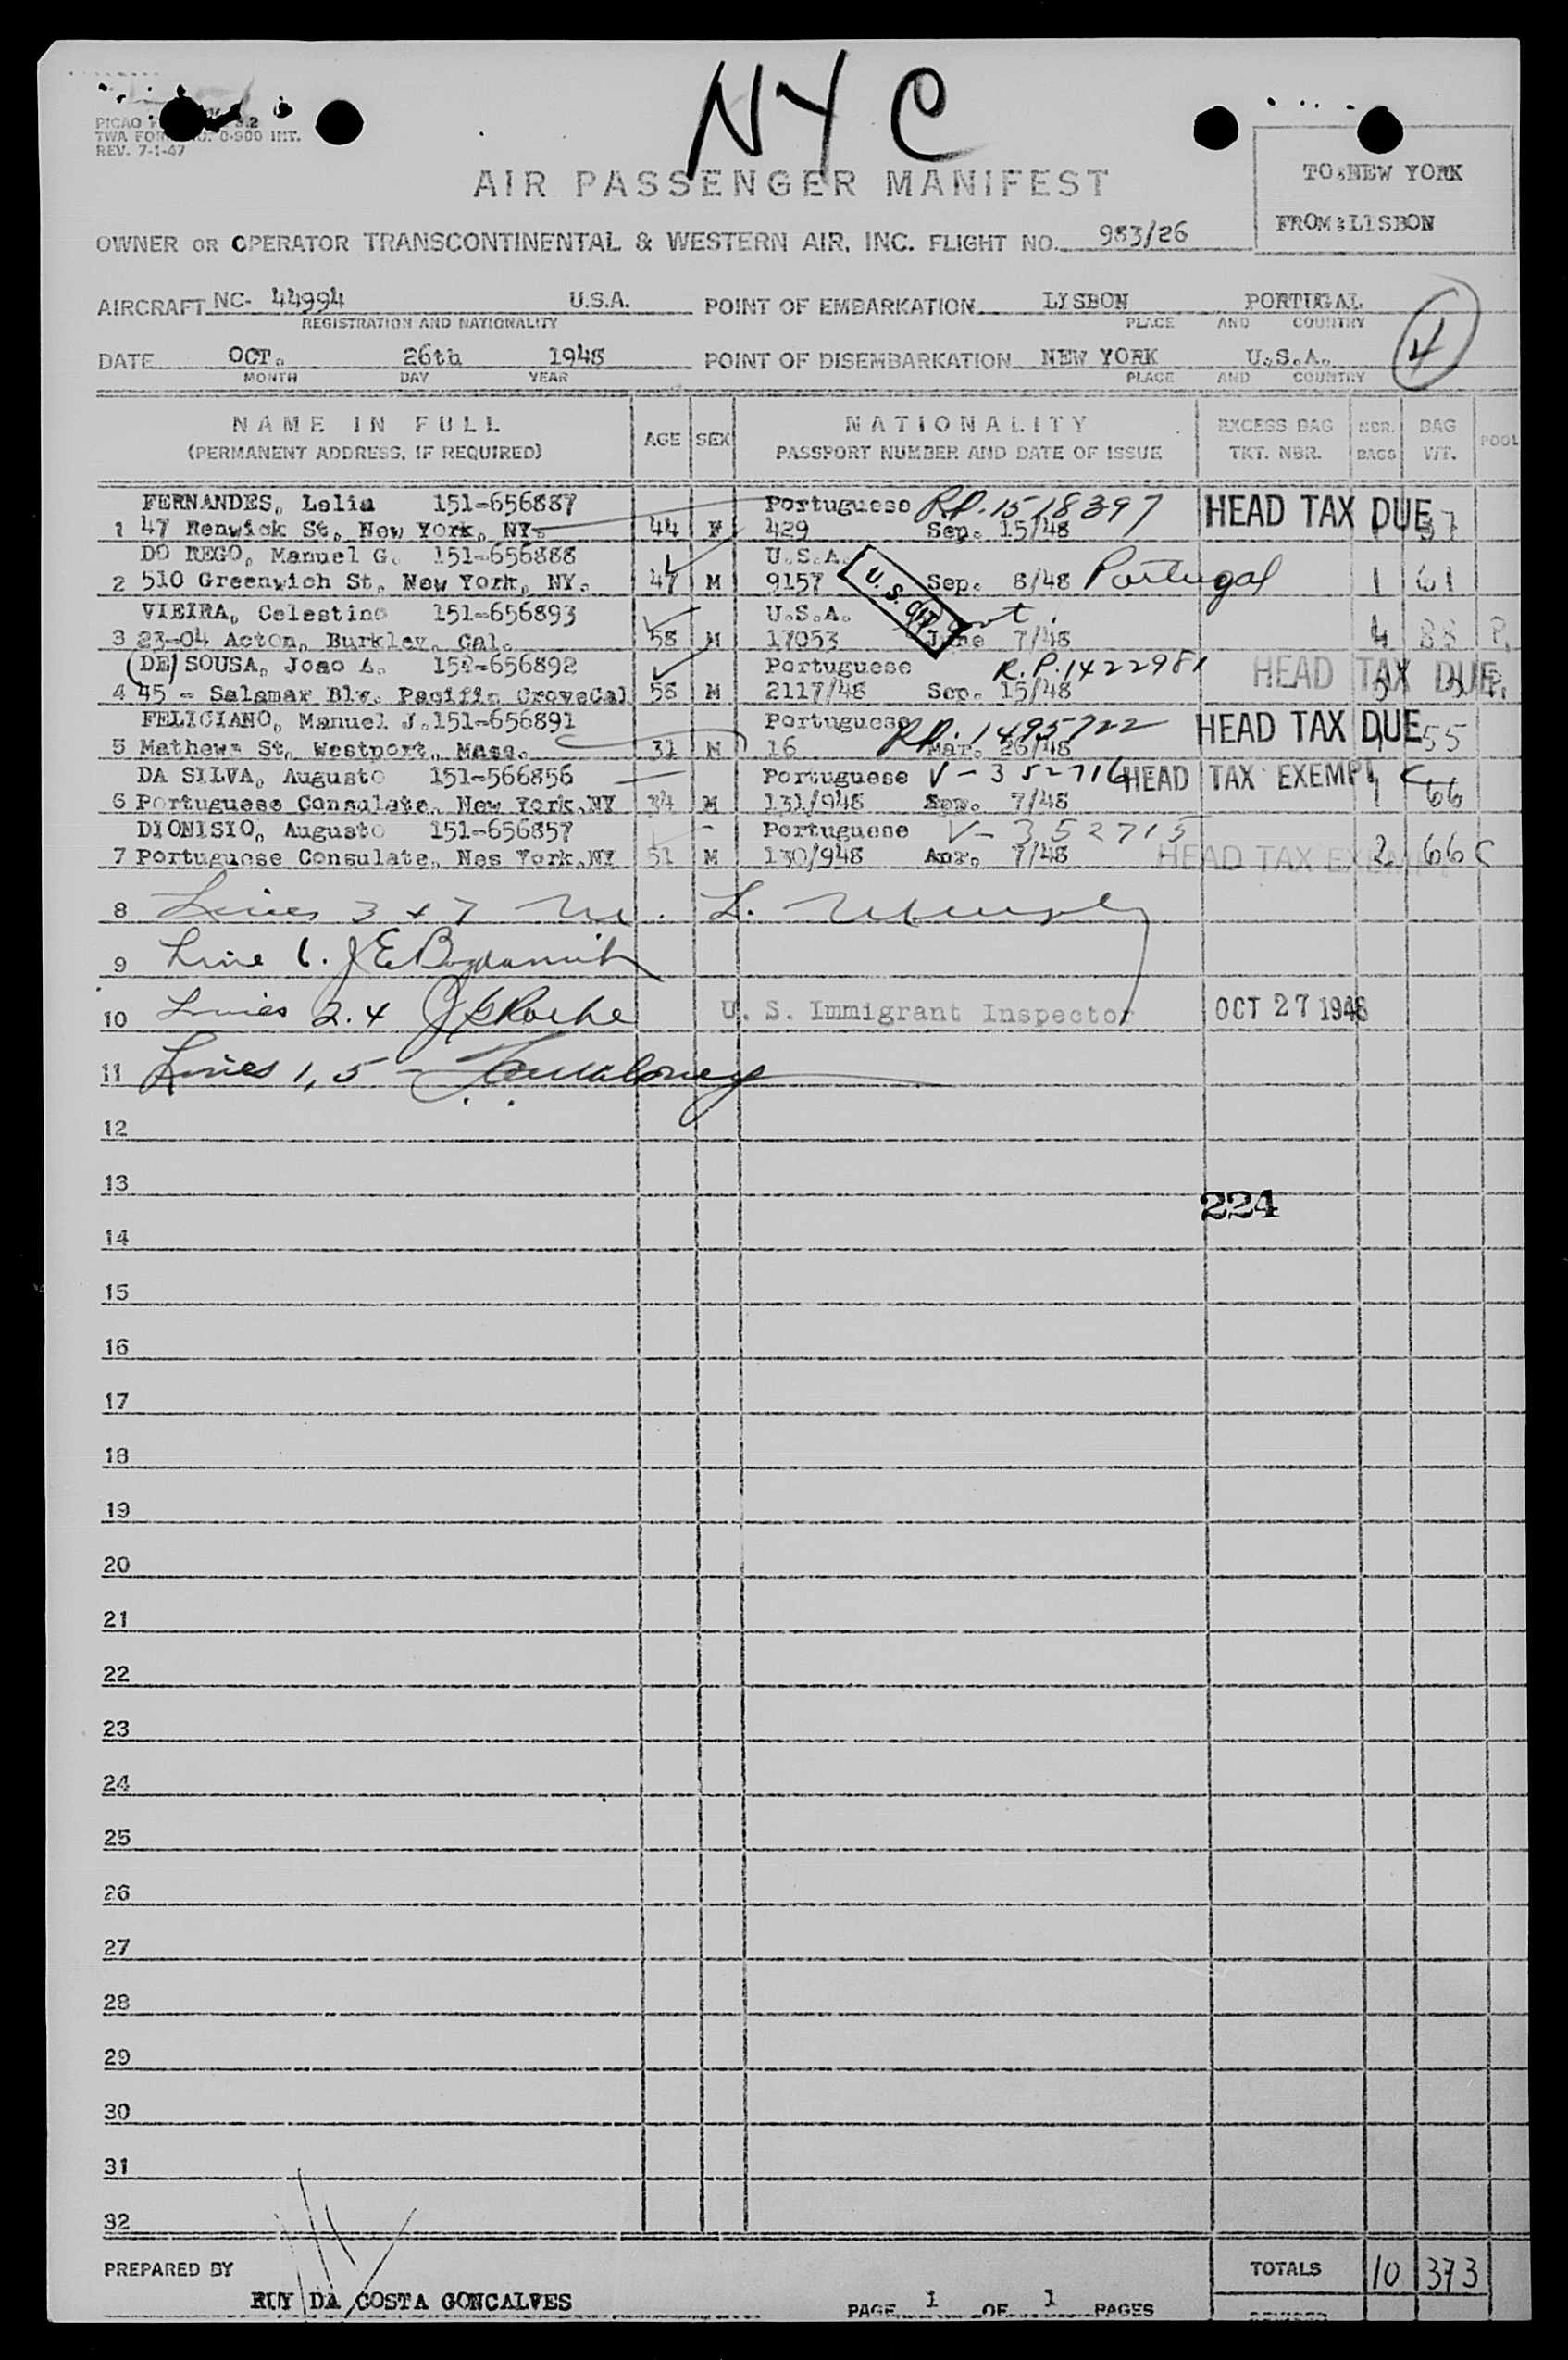 NYC
REV. 7-1-47
TO:NEW YORK
FROM:LISBON
AIR PASSENGER MANIFEST
OWNER OR OPERATOR TRANSCONTINENTAL & WESTERN AIR, INC. FLIGHT NO. 983/26
AIRCRAFT NC- 44994 U.S.A. POINT OF EMBARKATION LISBON PORTUGAL
REGISTRATION AND NATIONALITY PLACE AND COUNTRY
4
DATE OCT. 26th 1948 POINT OF DISEMBARKATION NEW YORK U.S.A.
MONTH DAY YEAR PLACE AND COUNTRY
NAME IN FULL AGE SEX NATIONALITY EXCESS BAG NBR. BAG POOL
(PERMANENT ADDRESS, IF REQUIRED) PASSPORT NUMBER AND DATE OF ISSUE TKT. NBR. BAGS WT.
FERNANDES, Lelia 151-656887 Portuguese R.P. 1518397 HEAD TAX DUE
1 47 Renwick St, New York, NY. 44 F 429 Sep. 15/48
DO REGO, Manuel G. 151-656888 U.S.A.
2 510 Greenwich St, New York, NY. 47 M 9157 Sep. 8/48 Portugal 1 61
VIEIRA, Celestino 151-656893 U.S.A.
3 23-04 Acton, Burkley, Cal. 58 M 17053 June 7/48 4 88 P.
(DE) SOUSA, Joao A. 152-656892 Portuguese R.P. 1422981 HEAD TAX DUE
4 45 - Salamar Blv. Pacific GroveCal 58 M 2117/48 Sep. 15/48
FELICIANO, Manuel J. 151-656891 Portuguese R.P. 1495722 HEAD TAX DUE
5 Mathews St, Westport, Mass. 31 M 16 Mar. 26/48 55
DA SILVA, Augusto 151-566856 Portuguese V-352716 HEAD TAX EXEMPT C
6 Portuguese Consulate, New York,NY 34 M 131/948 Apr. 7/48 1 66
DIONISIO, Augusto 151-656857 Portuguese V-352715
7 Portuguese Consulate, Nes York,NY 51 M 130/948 Apr, 7/48 HEAD TAX EXEMPT 2 66 C
8 Lines 3 + 7 M. L.
9 Line 6. J E
10 Lines 2.4 J Roche U. S. Immigrant Inspector OCT 27 1948
11 Lines 1, 5 -
12
13
224
14
15
16
17
18
19
20
21
22
23
24
25
26
27
28
29
30
31
32
PREPARED BY TOTALS 10 373
RUY DA COSTA GONCALVES PAGE 1 OF 1 PAGES